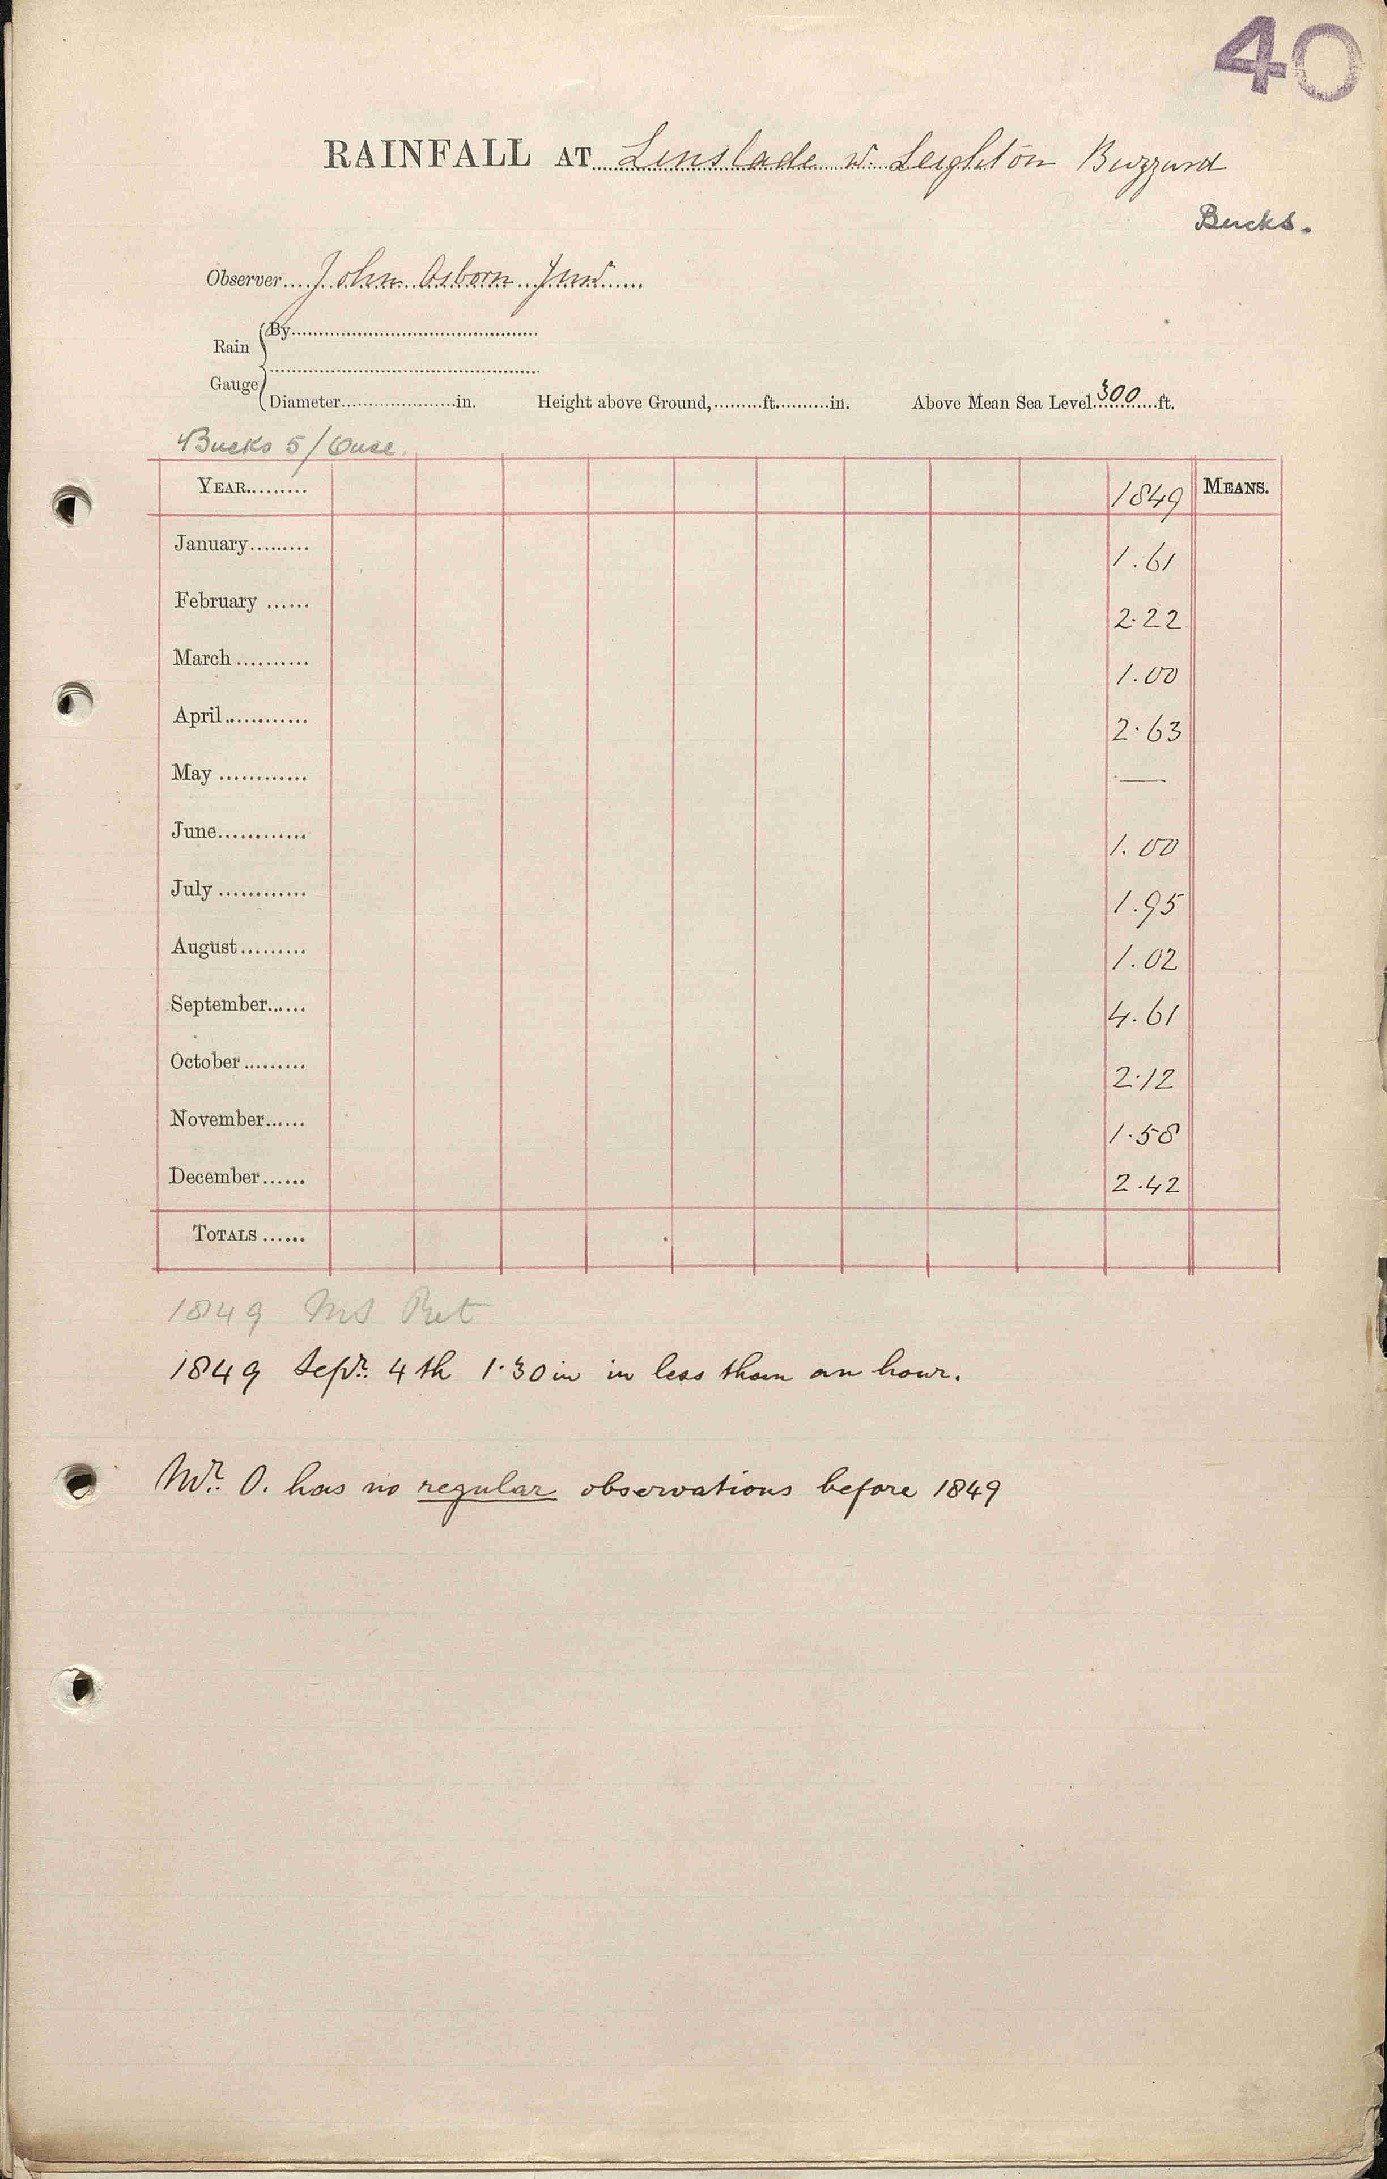 40
RAINFALL AT Linslade w. Leighton Buzzard
Bucks.
Observer....John Osborn Junr......
Rain Gauge { By..............................
..............................
Diameter....................in. Height above Ground,.........ft..........in. Above Mean Sea Level 300 ft.
Bucks 5/Ouse.
YEAR......... 1849 MEANS.
January......... 1.61
February ...... 2.22
March.......... 1.00
April............ 2.63
May ............ —
June............ 1.00
July ............ 1.95
August......... 1.02
September...... 4.61
October......... 2.12
November...... 1.58
December...... 2.42
TOTALS ......
1849 MS Ret
1849 Sepr. 4th 1.30 in in less than an hour.
Mr. O. has no regular observations before 1849